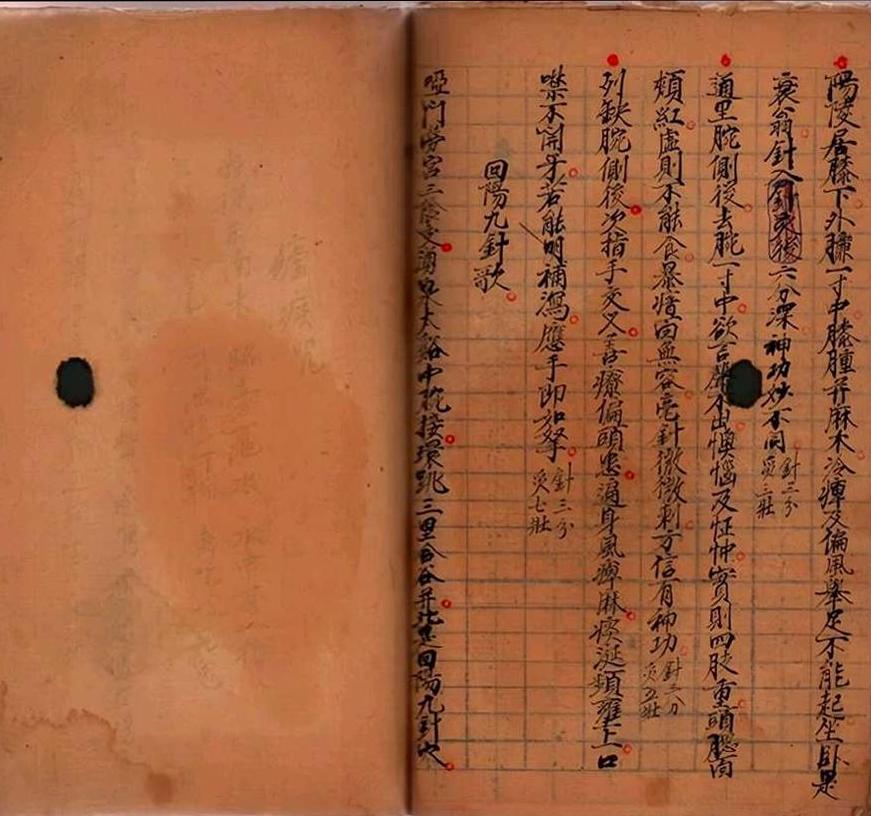 陽陵居膝下外臁一寸中膝腫并麻木冷痺及偏風舉足不能起坐臥是
衰翁針入六分深神功妙不同針三分灸三壯
通里腕側後去腕一寸中欲言聲不出懊惱及怔忡實則四肢重頭腮面
頰紅虛則不能食暴瘖面無容毫針微微刺方信有神功針三分灸五壯
列缺腕側後次指手交叉善療偏頭患遍身風痺麻痰涎頻壅上口
噤不開牙若能明補瀉應手即如拏針三分灸七壯
回陽九針歌
啞門勞宮三陰交湧泉太谿中脘接環跳三里合谷并此是回陽九針穴